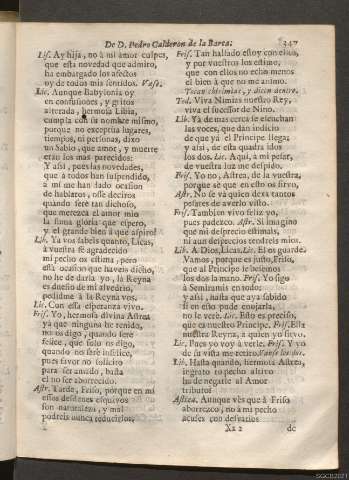 De D. Pedro Calderon de la Barca.
347
Lis. Ay hija, no à mi amor culpes,
que esta novedad que admiro,
ha embargado los afectos
oy de todos mis sentidos. Vase.
Lic. Aunque Babylonia oy
en confusiones, y gritos
alterada, hermosa Libia,
cumpla con su nombre mismo,
porque no exceptúa lugares,
tiempos, ni personas, dixo
un Sabio, que amor, y muerte
eran los mas parecidos:
Y assi, pues las novedades,
que à todos han suspendido,
à mi me han dado ocasion
de hablaros, osse deciros
quando serè tan dichoso,
que merezca el amor mio
la suma gloria que espero,
y el grande bien à que aspiro?
Lib. Ya vos sabeis quanto, Licas,
à vuestra fè agradecido
mi pecho os estima; pero
esta ocasion que haveis dicho,
no he de darla yo, la Reyna
es dueño de mi alvedrio,
pedidme à la Reyna vos.
Lic. Con essa esperanza vivo.
Fris. Yo, hermosa divina Astrea
ya que ninguna he tenido,
no os digo, quando serè
felice, que solo os digo,
quando no serè infelice,
pues favor no solicito
para ser amado, basta
el no ser aborrecido.
Astr. Tarde, Friso, porque en mi
essos desdenes esquivos
son naturaleza, y mal
podreis nunca reducirlos.
Fris. Tan hallado estoy con ellos,
y por vuestros los estimo,
que con ellos no echa menos
el bien à que no me animo.
Tocan chirimias, y dicen dentro.
Tod. Viva Nimias nuestro Rey,
viva el sucessor de Nino.
Lib. Yà de mas cerca se escuchan
las voces, que dan indicio
de que yà el Principe llega;
y assi, de esta quadra idos
los dos. Lic. Aqui, à mi pesar,
de vuestra luz me despido.
Fris. Yo no, Astrea, de la vuestra,
porque sè que en esto os sirvo.
Astr. No se và quien dexa tantos
pesares de averlo visto.
Fris. Tambien vivo feliz yo,
pues padezco. Astr. Si imagino
que mi desprecio estimais,
ni aun desprecios tendreis mios.
Lib. A Dios, Licas. Lic. El os guarde.
Vamos, porque es justo, Friso,
que al Principe le besemos
los dos la mano. Fris. Yo sigo
à Semiramis en todo;
y assi, hasta que aya sabido
si en esto pude enojarla,
no le verè. Lic. Esto es preciso,
que es nuestro Principe. Fris. Ella
nuestra Reyna, à quien yo sirvo.
Lic. Pues yo voy à verle. Fris. Y yo
de su vista me retiro. Vanse los dos.
Lib. Hasta quando, hermosa Astrea,
ingrato tu pecho altivo
ha de negarle al Amor
tributos?
Astrea. Aunque vès que à Friso
aborrezco, no à mi pecho
acuses con desvarios
Xx 2
de
SGCB2021